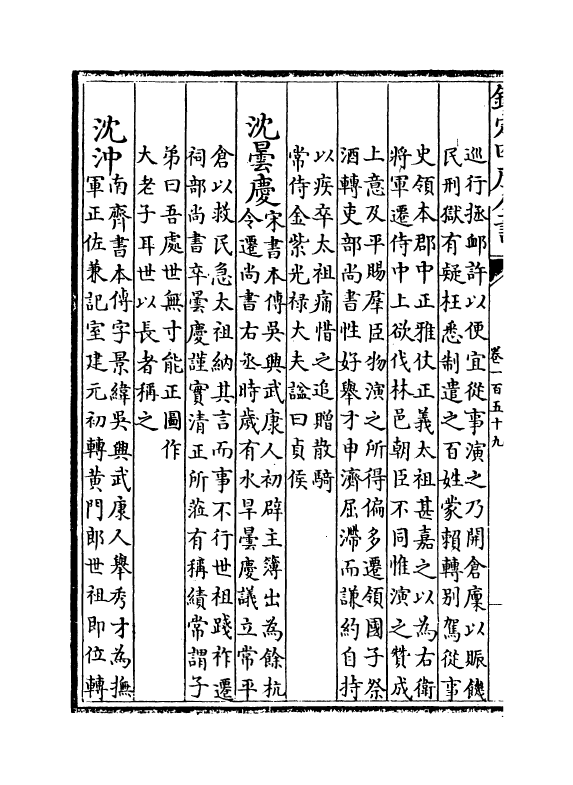 卷一百五十九
巡行拯衈許以便宜從事演之乃開倉廪以賑饑
民刑獄有疑枉悉制遣之百姓蒙賴轉别駕從事
史領本郡中正雅仗正義太祖甚嘉之以為右衛
將軍遷侍中上欲伐林邑朝臣不同惟演之贊成
上意及平賜羣臣物演之所得偏多遷領國子祭
酒轉吏部尚書性好舉才申濟屈滯而謙約自持
以疾卒太祖痛惜之追贈散騎
常侍金紫光禄大夫諡曰貞侯
沈曇慶
宋書本傳吳興武康人初辟主簿出為餘杭
令遷尚書右丞時歲有水旱曇慶議立常平
倉以救民急太祖納其言而事不行世祖踐祚遷
祠部尚書卒曇慶謹實清正所蒞有稱績常謂子
弟曰吾處世無寸能正圖作
大老子耳世以長者稱之
沈沖
南齊書本傳字景緯吳興武康人舉秀才為撫
軍正佐兼記室建元初轉黄門郎世祖即位轉